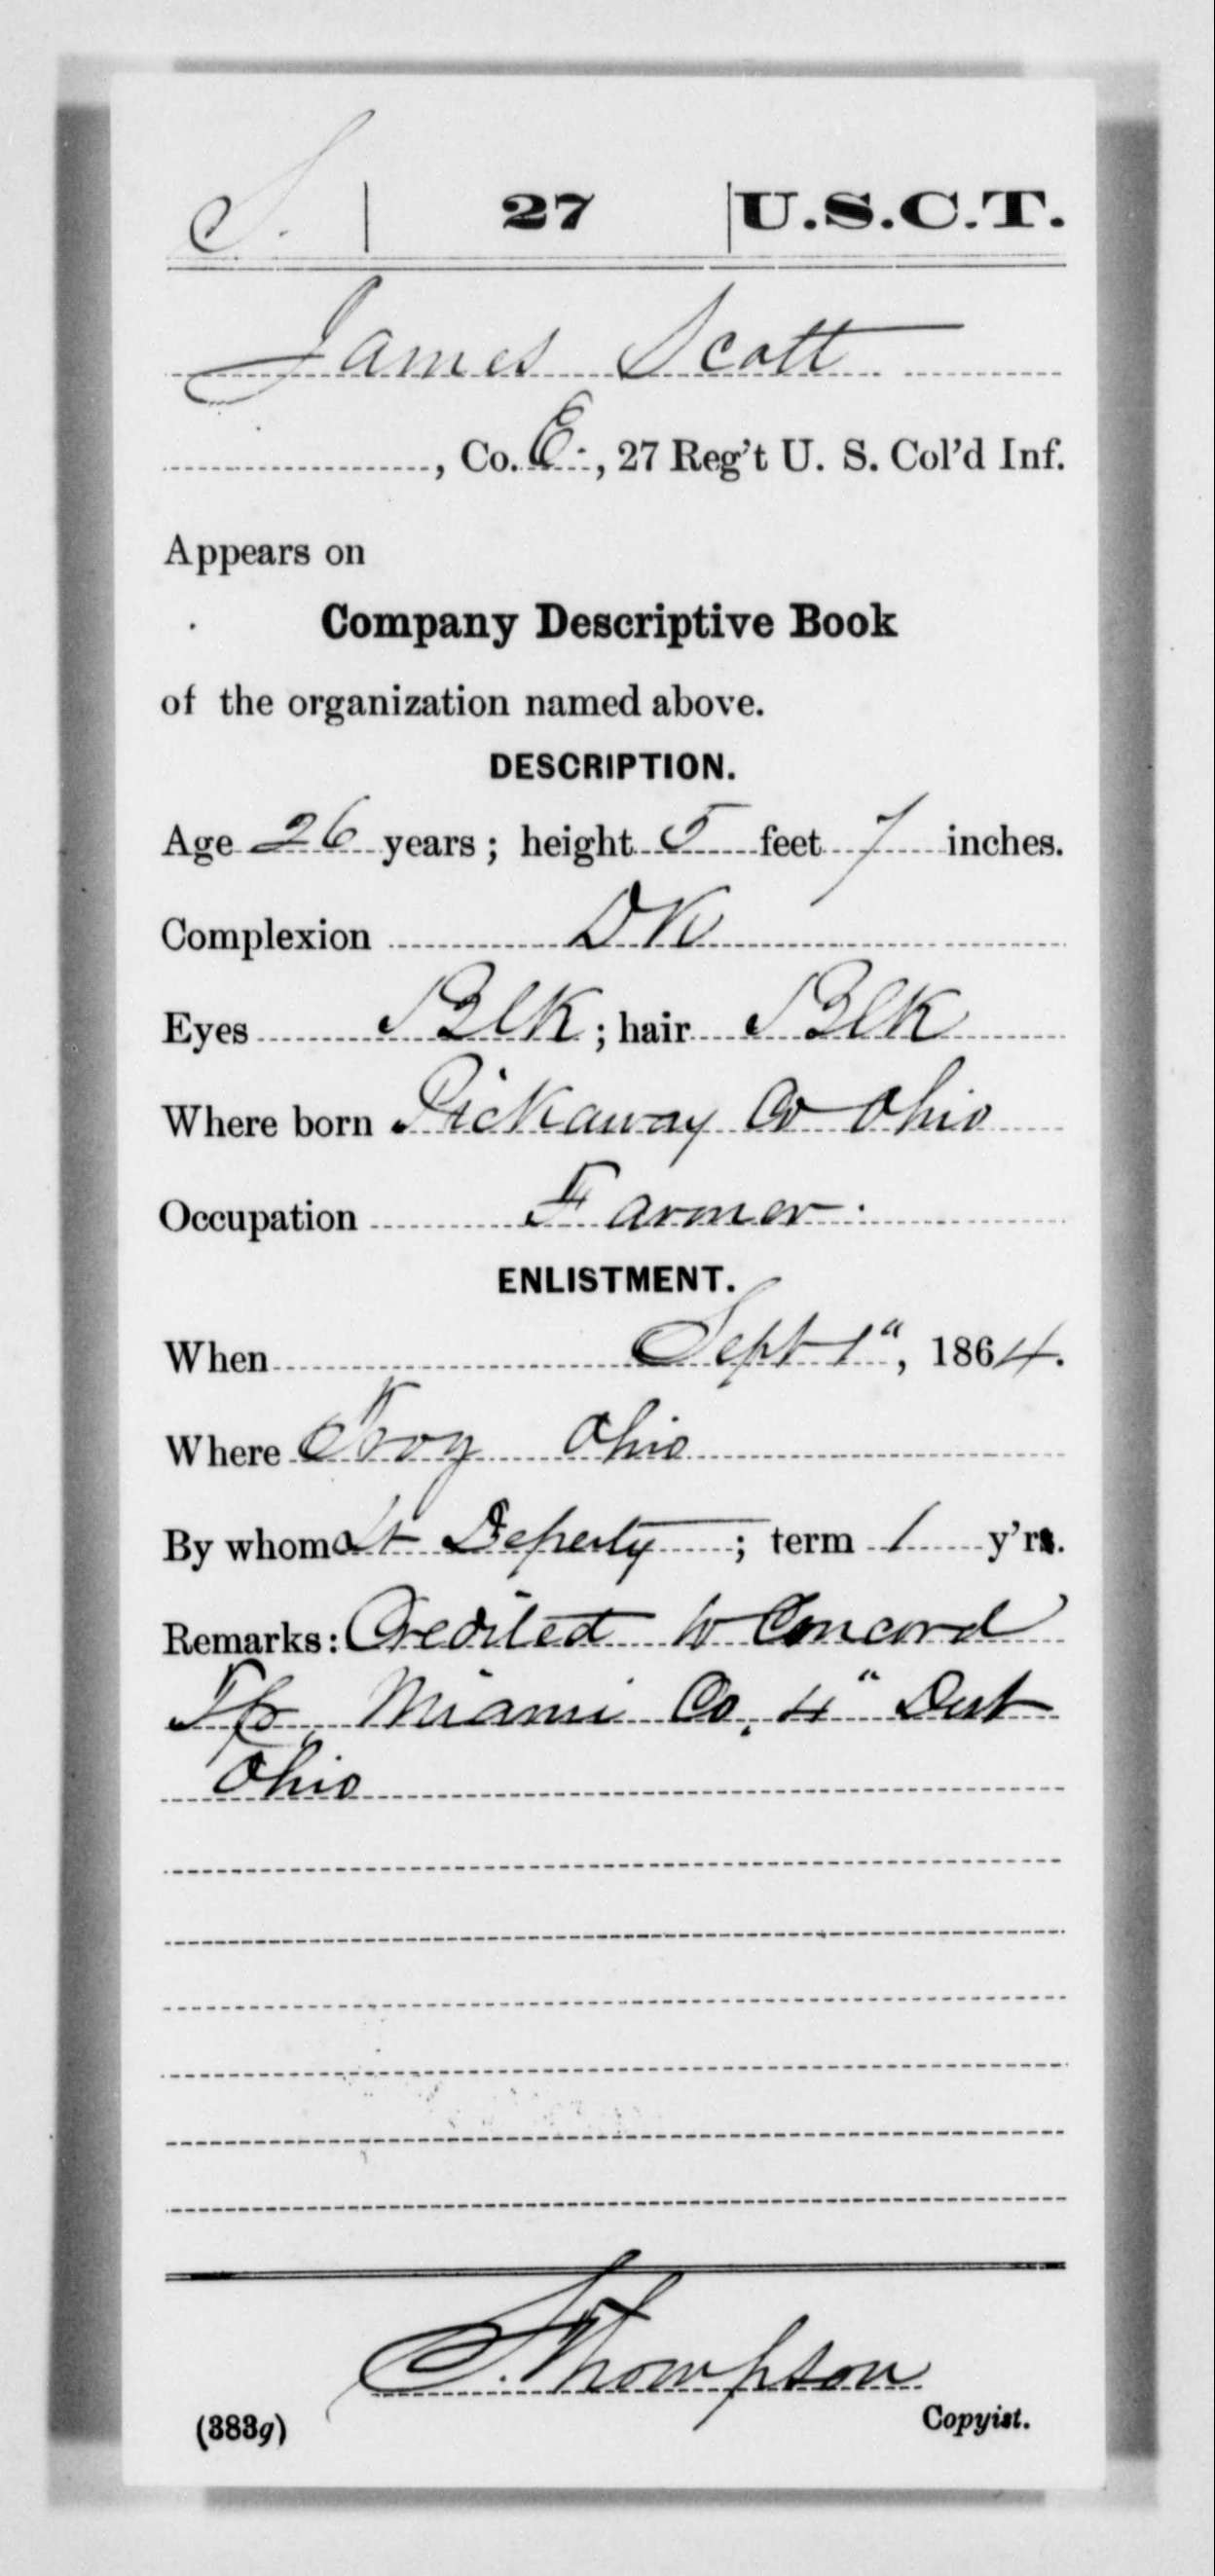 S. | 27 | U.S.C.T.
James Scott
, Co. E., 27 Reg't U. S. Col'd Inf.
Appears on
Company Descriptive Book
of the organization named above.
DESCRIPTION.
Age 26 years; height 5 feet 7 inches.
Complexion DK
Eyes Blk; hair Blk
Where born Pickaway Co Ohio
Occupation Farmer.
ENLISTMENT.
When Sept 1", 1864.
Where Troy Ohio
By whom Lt ; term 1 y'rs.
Remarks: Credited to Concord
Tp Miami Co, 4" Dist
Ohio
S. Thompson
(383g) Copyist.